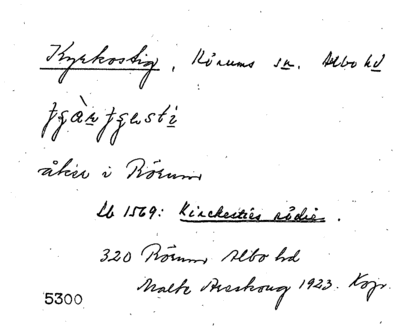 Kyrkostig, Rörums sn. Albo hd
åker i Rörum
Lb 1569: Kirckesties rödie.
320 Rörum Albo hd
Malte Areskoug 1923. Kop.
5300